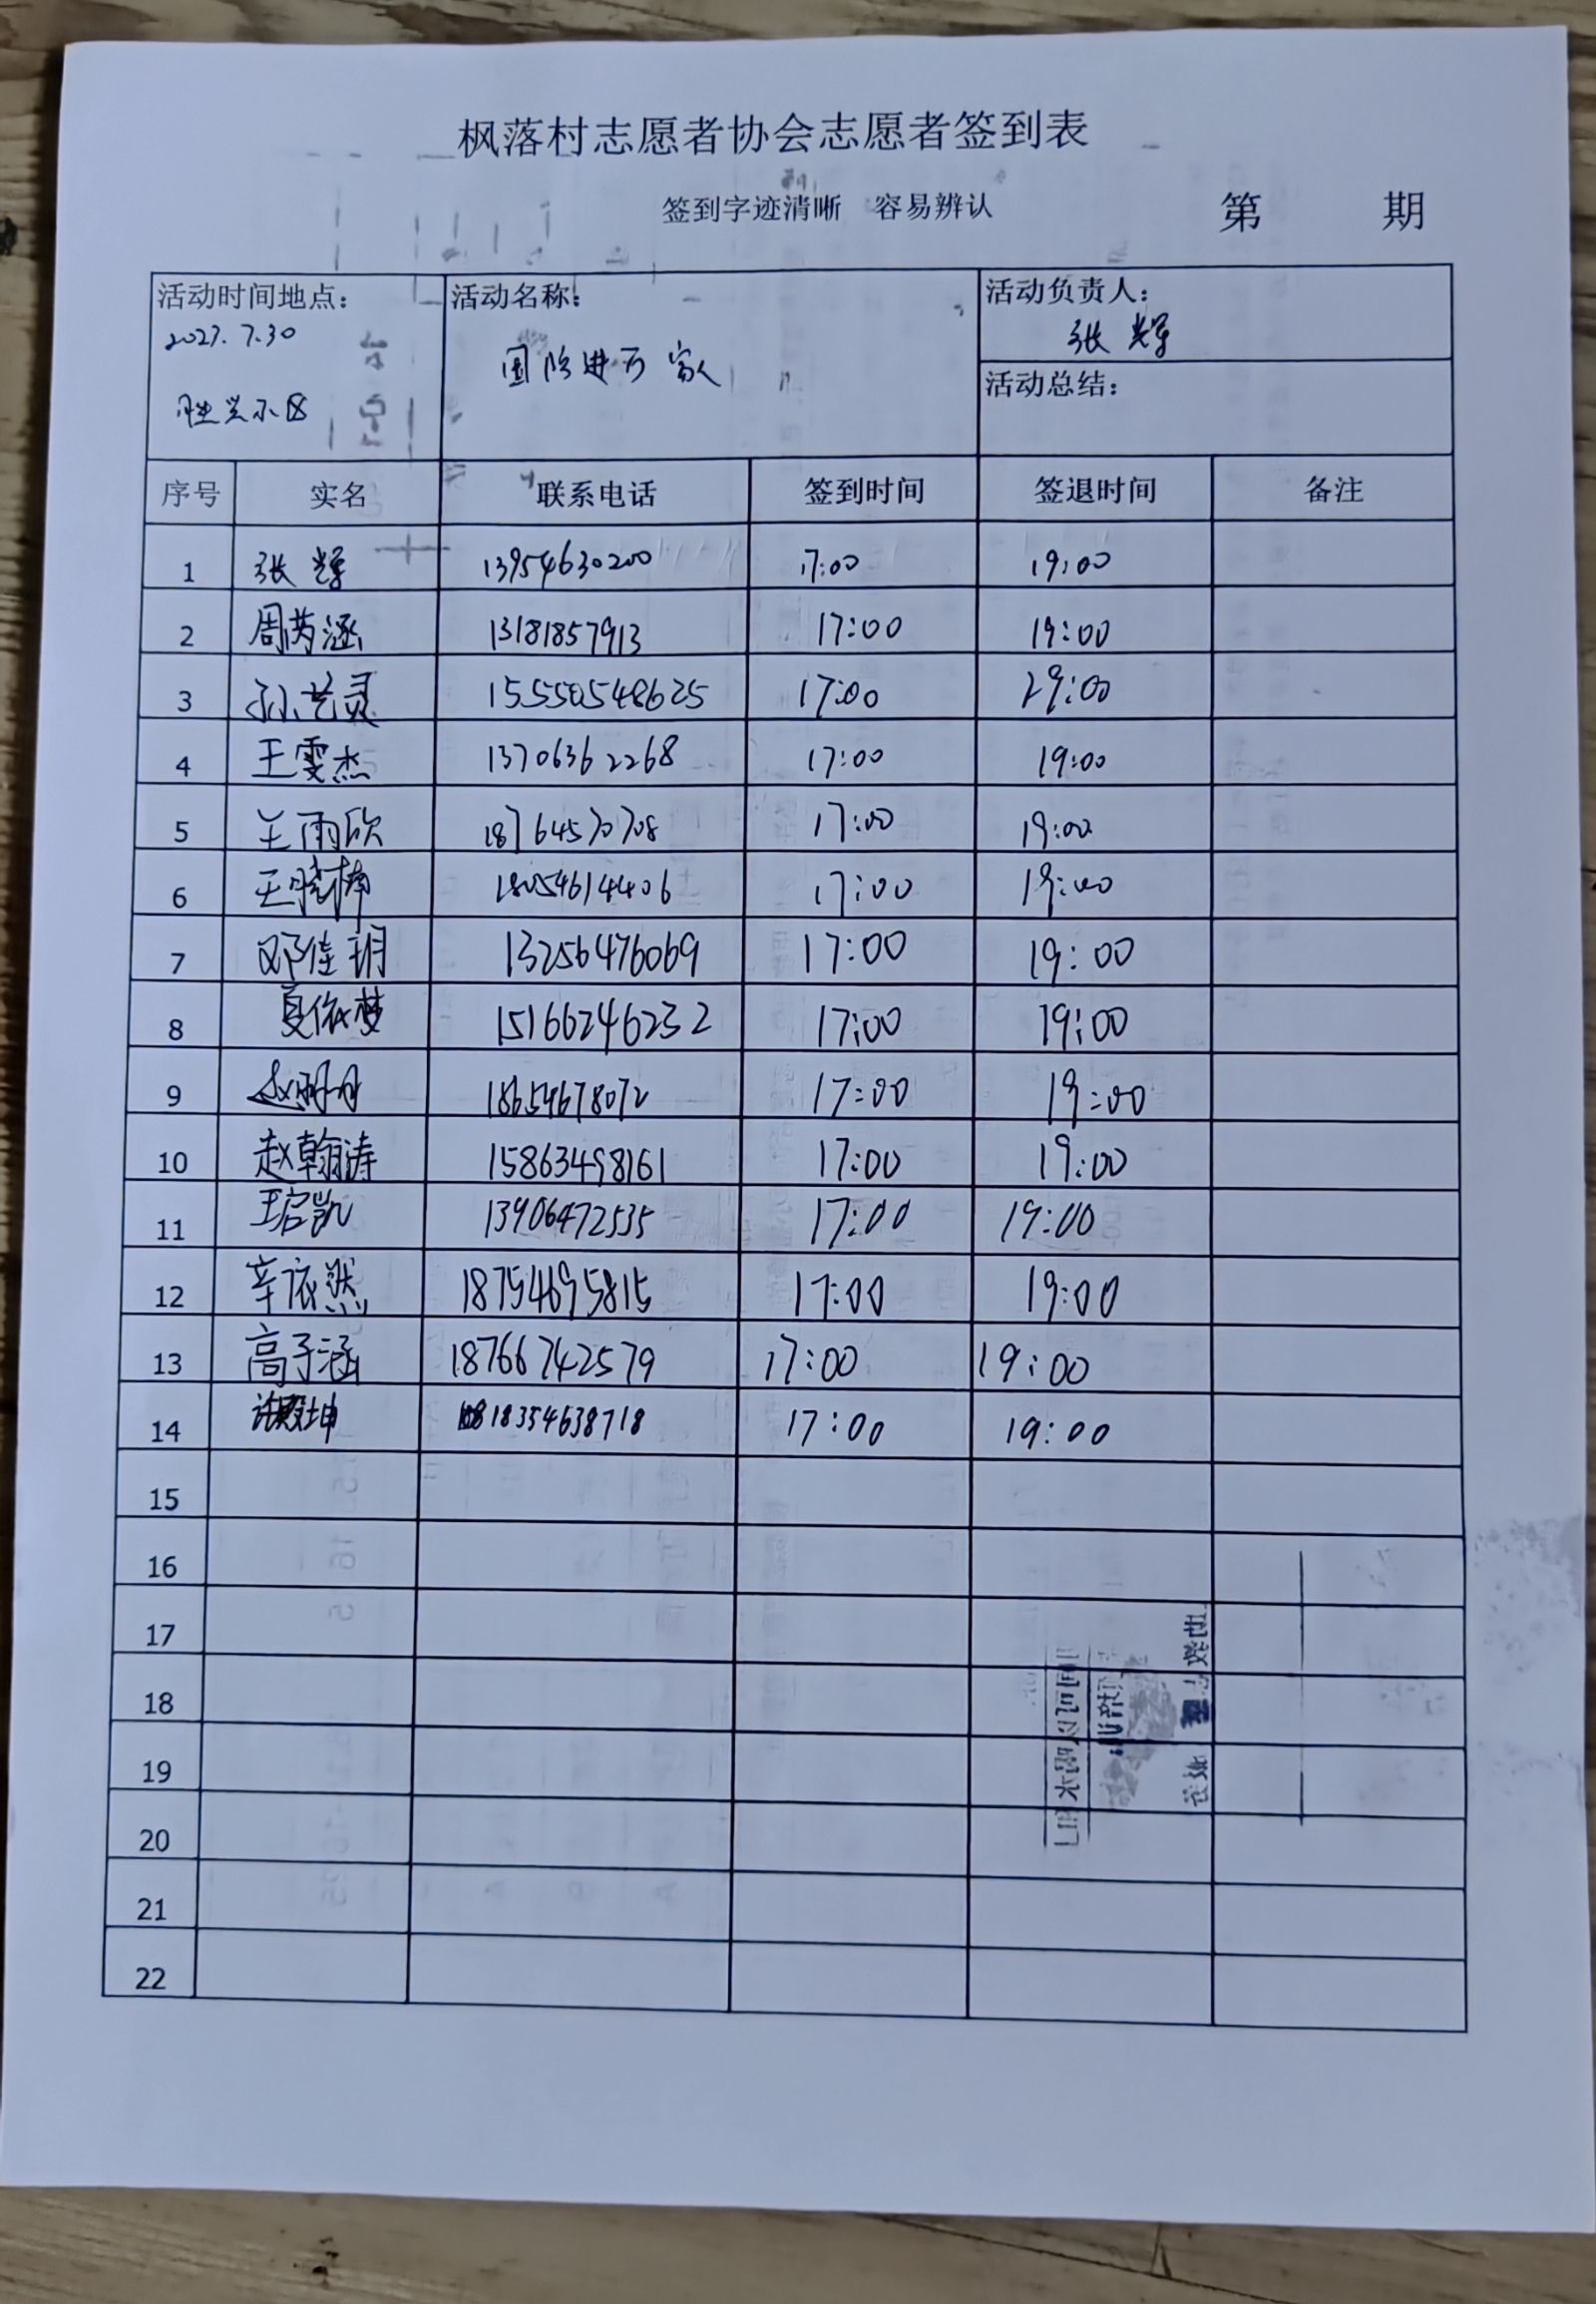 枫落村志愿者协会志愿者签到表
签到字迹清晰 容易辨认 第 期
活动时间地点： 活动名称： 活动负责人：
2023.7.30 张辉
国防进万家
胜兴小区 活动总结：
序号 实名 联系电话 签到时间 签退时间 备注
1 张辉 13954630200 17:00 19:00
2 周芮涵 13181857913 17:00 19:00
3 孙艺灵 15550548625 17:00 29:00
4 王雯杰 13706362268 17:00 19:00
5 王雨欣 18764570708 17:00 19:00
6 王晓梅 18054614406 17:00 19:00
7 邓佳玥 13256476069 17:00 19:00
8 夏依梦 15166246232 17:00 19:00
9 赵 18654678072 17:00 19:00
10 赵翰涛 15863498161 17:00 19:00
11 王启凯 13906472535 17:00 19:00
12 辛依然 18754695815 17:00 19:00
13 高子涵 18766742579 17:00 19:00
14 许殿坤 18354638718 17:00 19:00
15
16
17
18
19
20
21
22